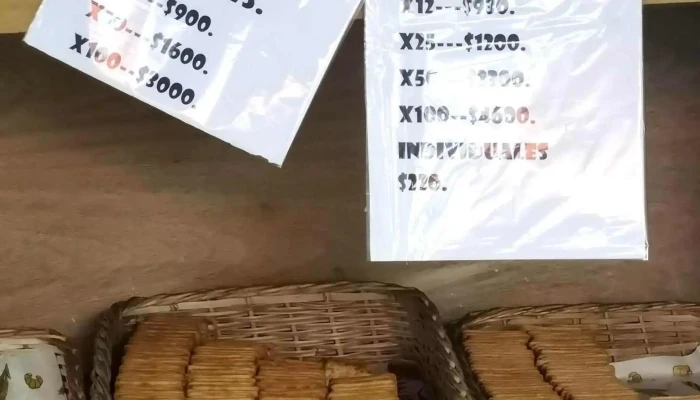 $900.
$1600.
X100--$3000.
X12---$930.
X25---$1200.
X100--$4600.
INDIVIDUALES
$220.